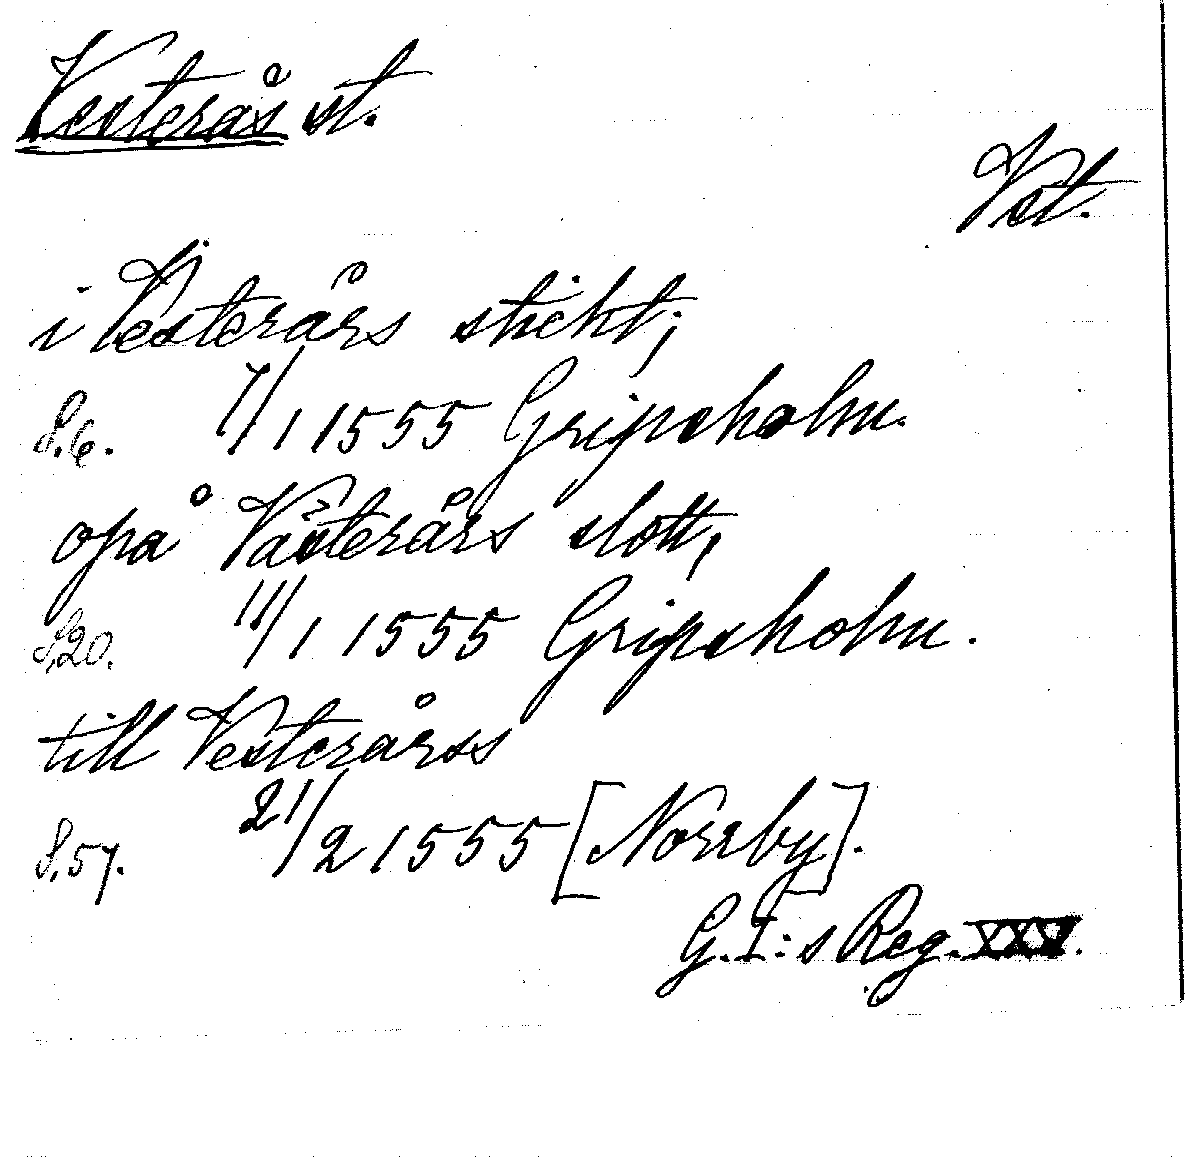 Vesterås st.
Vst.
i Vesterårs sticht;
S.6. 7/1 1555 Gripsholm.
opå Västerårs slott,
S.20. 11/1 1555 Gripsholm.
till Vesterårss
S.57. 21/2 1555 [Norrby].
G.I:s Reg. XXV.